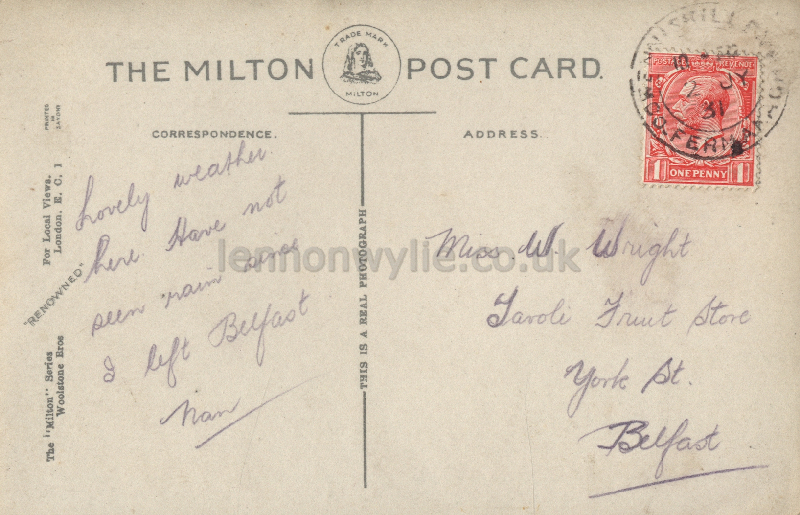 TRADE MARK
MILTON
THE MILTON POST CARD.
CORRESPONDENCE.
ADDRESS.
PRINTED
IN
SAXONY
For Local Views.
London. E. C. 1
"RENOWNED"
The "Milton" Series
Woolstone Bros
THIS IS A REAL PHOTOGRAPH
Lovely weather
here Have not
seen rain since
I left Belfast
Nan
POSTAGE REVENUE
1 ONE PENNY 1
JY
31
CO. FERMANAGH
Miss W. Wright
Fruit Store
York St.
Belfast
lennonwylie.co.uk